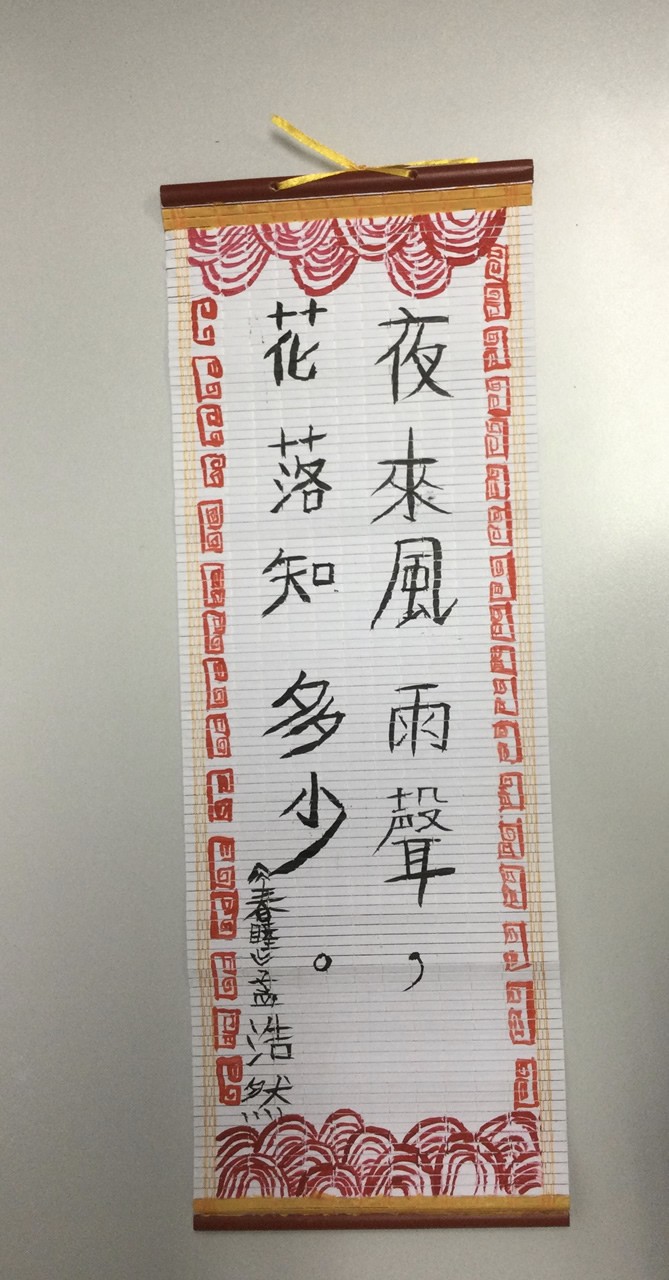 夜來風雨聲，
花落知多少。
《春睡》孟浩然